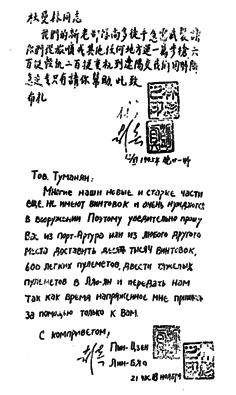 杜曼楊同志
我們的新老部隊尚多徒手急需武裝請
你們從旅順或其他任何地方運一萬步槍六
百挺輕機二百挺重機到遼陽交我們因時間
急迫只有請你幫助 此致
布礼
Тов. Туманян:
Многие наши новые и старые части
еще не имеют винтовок и очень нуждаются
в вооружении Поэтому убедительно прошу
Вас из порт-Артура или из любого другого
места доставить десять тысяч винтовок,
600 легких пулеметов, двести тяжелых
пулеметов в Ляо-ян и передать нам
Так как время напряженное мне пришлось
за помощью только к Вам.
С комприветом,
Пын-Цзен
Лин-Бяо
21 час ноября